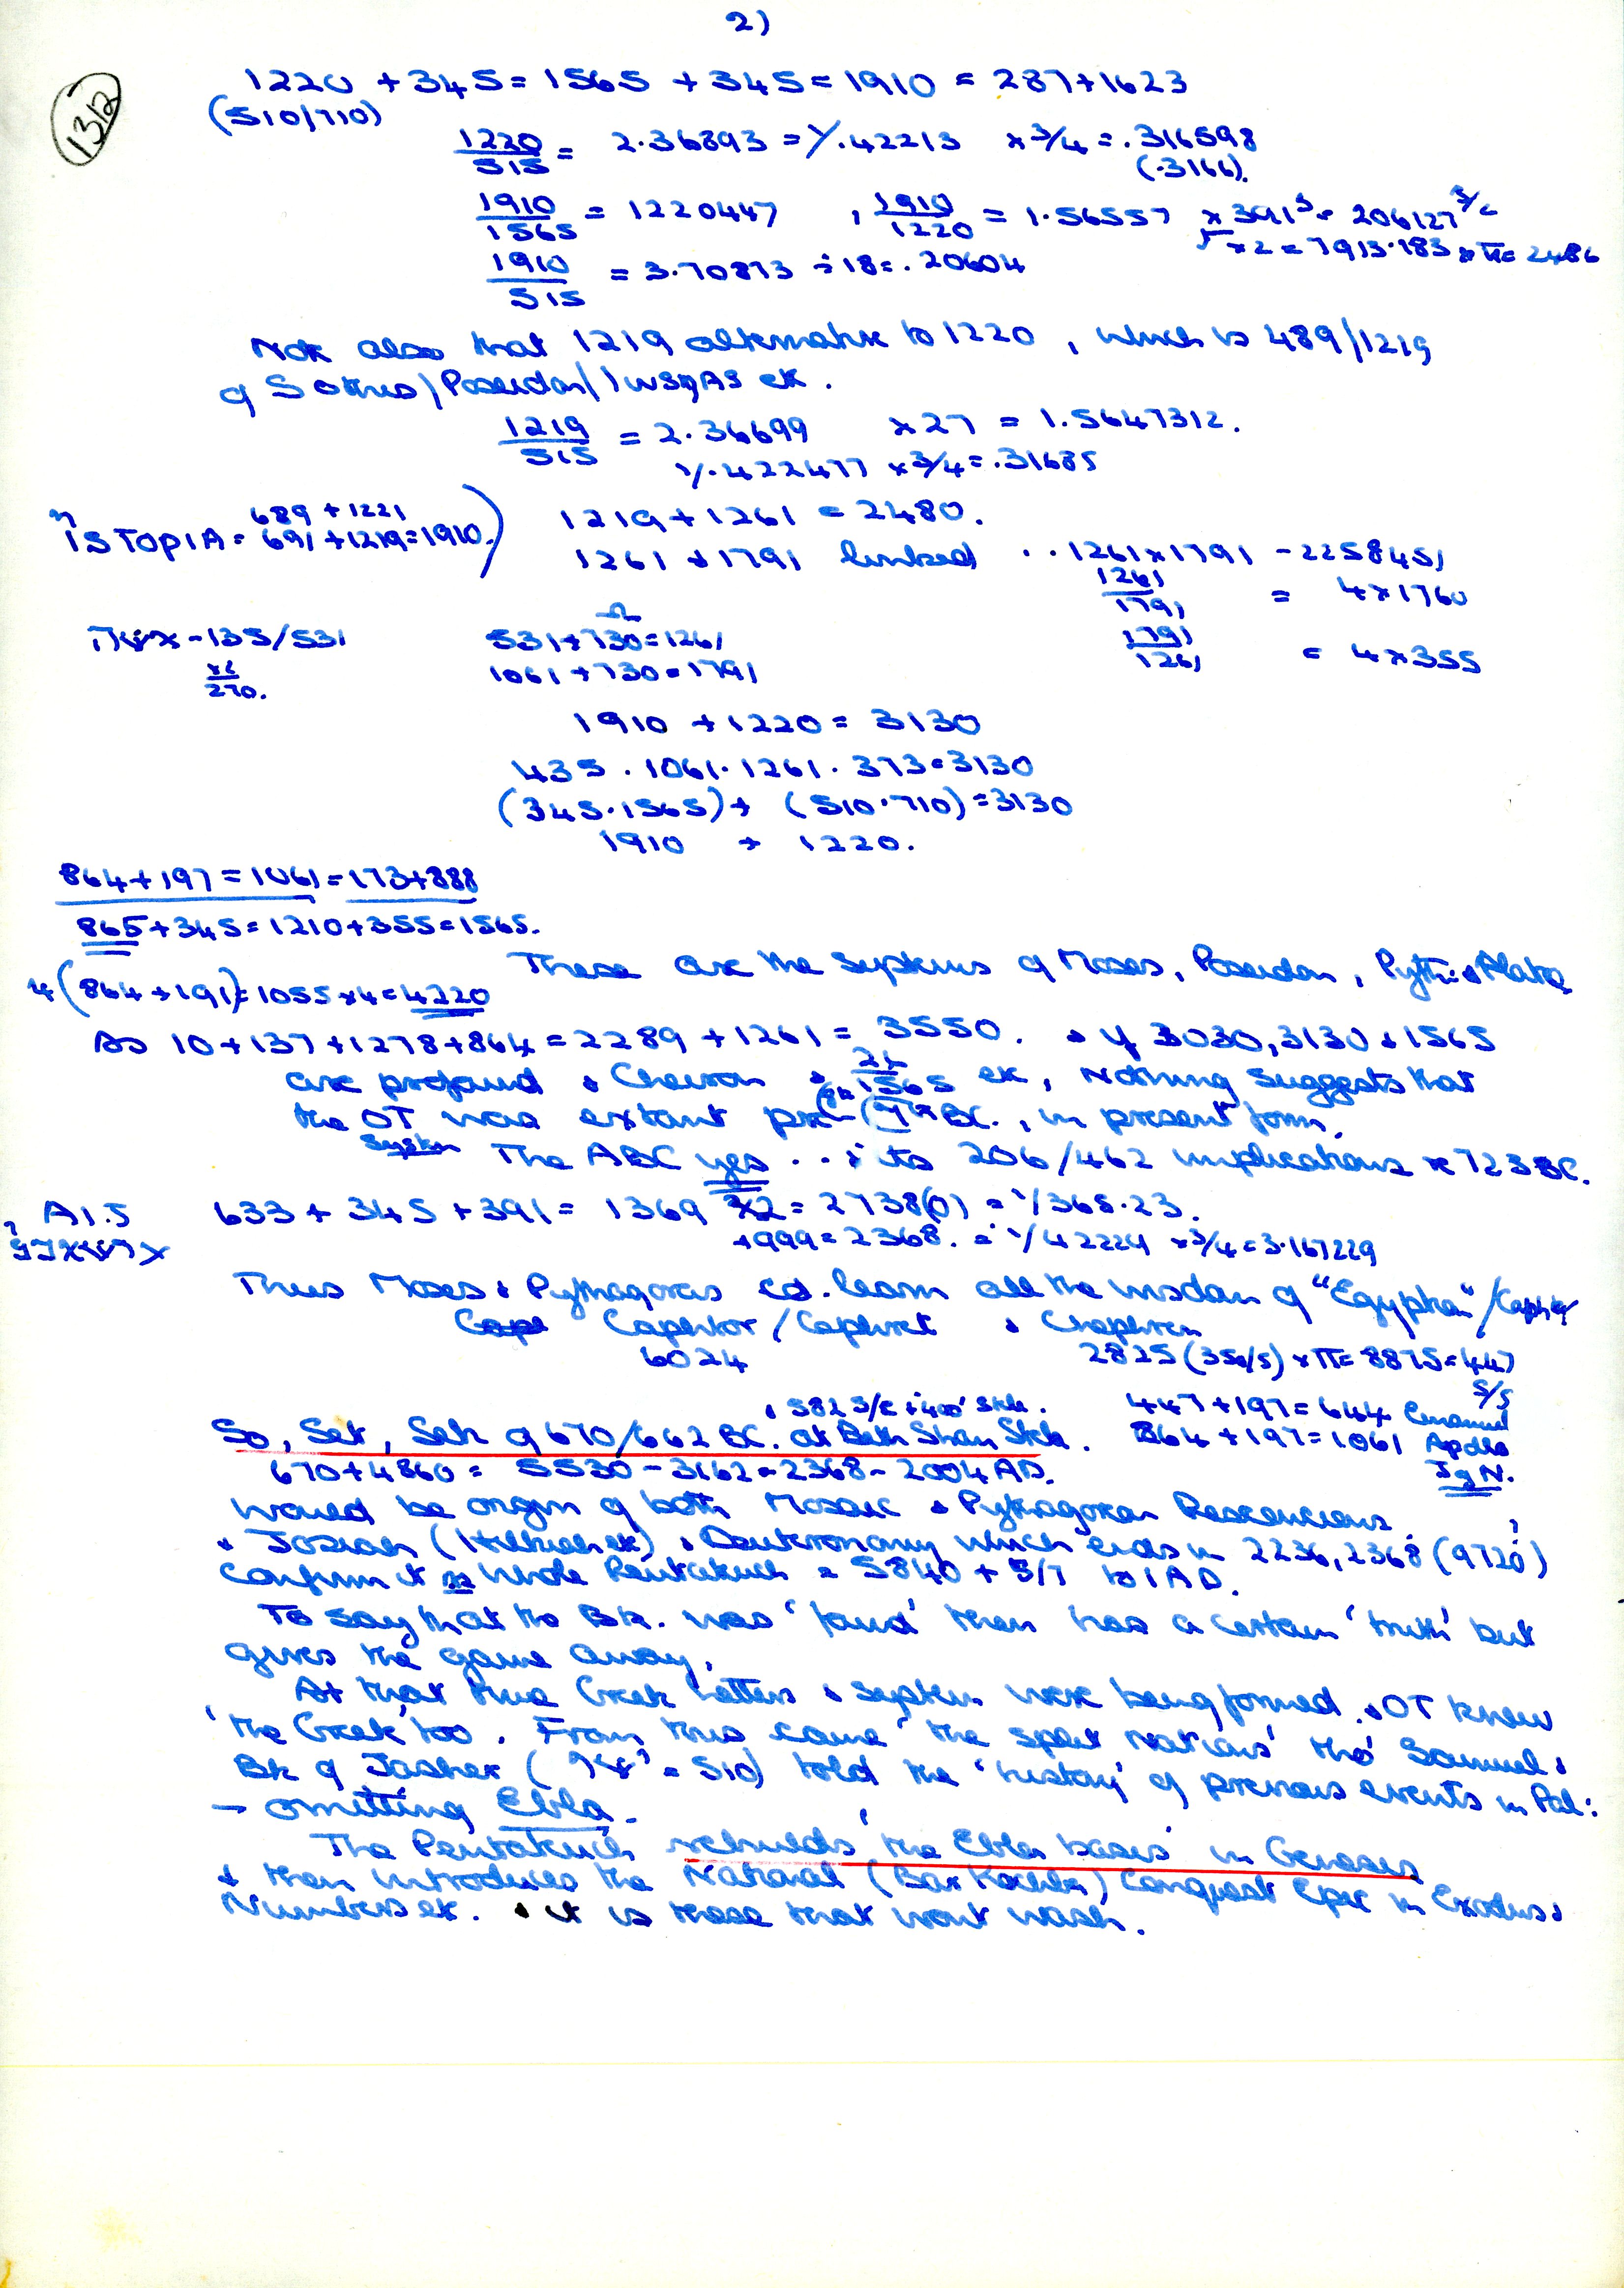 2)
1312
1220 + 345 = 1565 + 345 = 1910 = 287+1623
(510/710)
1220/515 = 2.36893 = 1/.42213 x 3/4 = .316598
(.3166).
1910/1565 = 1220447 , 1910/1220 = 1.56557 x 391³ = 206127
√ x 2 = 7913.183 x π = 2486
1910/515 = 3.70873 ÷ 18 = .20604
Note also that 1219 alternative to 1220 , which is 489/1219
of Sothis/Poseidon/ etc.
1219/515 = 2.36699 x 27 = 1.5647312.
1/.422477 x 3/4 = .31685
689 + 1221
ISTOPIA = 691 + 1219 = 1910.) 1219 + 1261 = 2480.
1261 + 1791 linked .. 1261 x 1791 - 2258451
1261/1791 = 4x1760
-135/531 531+730=1261
x2 1061+730=1791 1791/1261 = 4x355
270.
1910 + 1220 = 3130
435 . 1061 . 1261 . 373 = 3130
(345.1565) + (510.710) = 3130
1910 + 1220.
864+197 = 1061 = 173+888
865+345 = 1210+355 = 1565.
These are the systems of Moses, Poseidon, Pyth: & Plato
4(864+191) = 1055 x 4 = 4220
As 10+137+1278+864 = 2289 + 1261 = 3550. & if 3030, 3130 & 1565
are profound & Cheiron & 1565 etc, Nothing suggests that
the OT was extant pre BC., in present form.
system The ABC yes ... & its 206/462 implications 723 BC.
A1.5 633 + 345 + 391 = 1369 x2 = 2738(0) = 1/365.23.
+999 = 2368. = 1/42224 x 3/4 = 3.167229
Thus Moses & Pythagoras cd. learn all the wisdom of "Egyptian"
Caphtor/Caphret & Chephren
6024 2825 (350/5) x π = 8875 = 447
5/5
& 582 S/E + 400' Stele. 447+197 = 644 Emanuel
So, Set, Seth of 670/662 BC. at Beth Shan Stele. 864+197 = 1061 Apollo
J of N.
670+4860 = 5530 - 3162 = 2368 - 2004 AD.
would be origin of both Mosaic & Pythagorean Rescensions.
& Josiah (Hilkiah etc) & Deuteronomy which ends in 2236, 2368 (9720)
confirm it as whole Pentateuch = 5840 + 5/7 to 1 AD.
To say that the Bk. was 'found' then has a certain 'truth' but
gives the game away.
At that time Greek letters & system were being formed. & OT knew
'the Greek' too. From this came 'the spelt Nations' tho' Samuel &
Bk of Jasher ( = 510) told the 'history' of previous events in Pal:
– omitting Ebla.
The Pentateuch rebuilds 'the Ebla basis' in Genesis
& then introduces the National (Bar Kochba) Conquest Epic in Exodus &
Numbers etc. & it is these that wont wash.